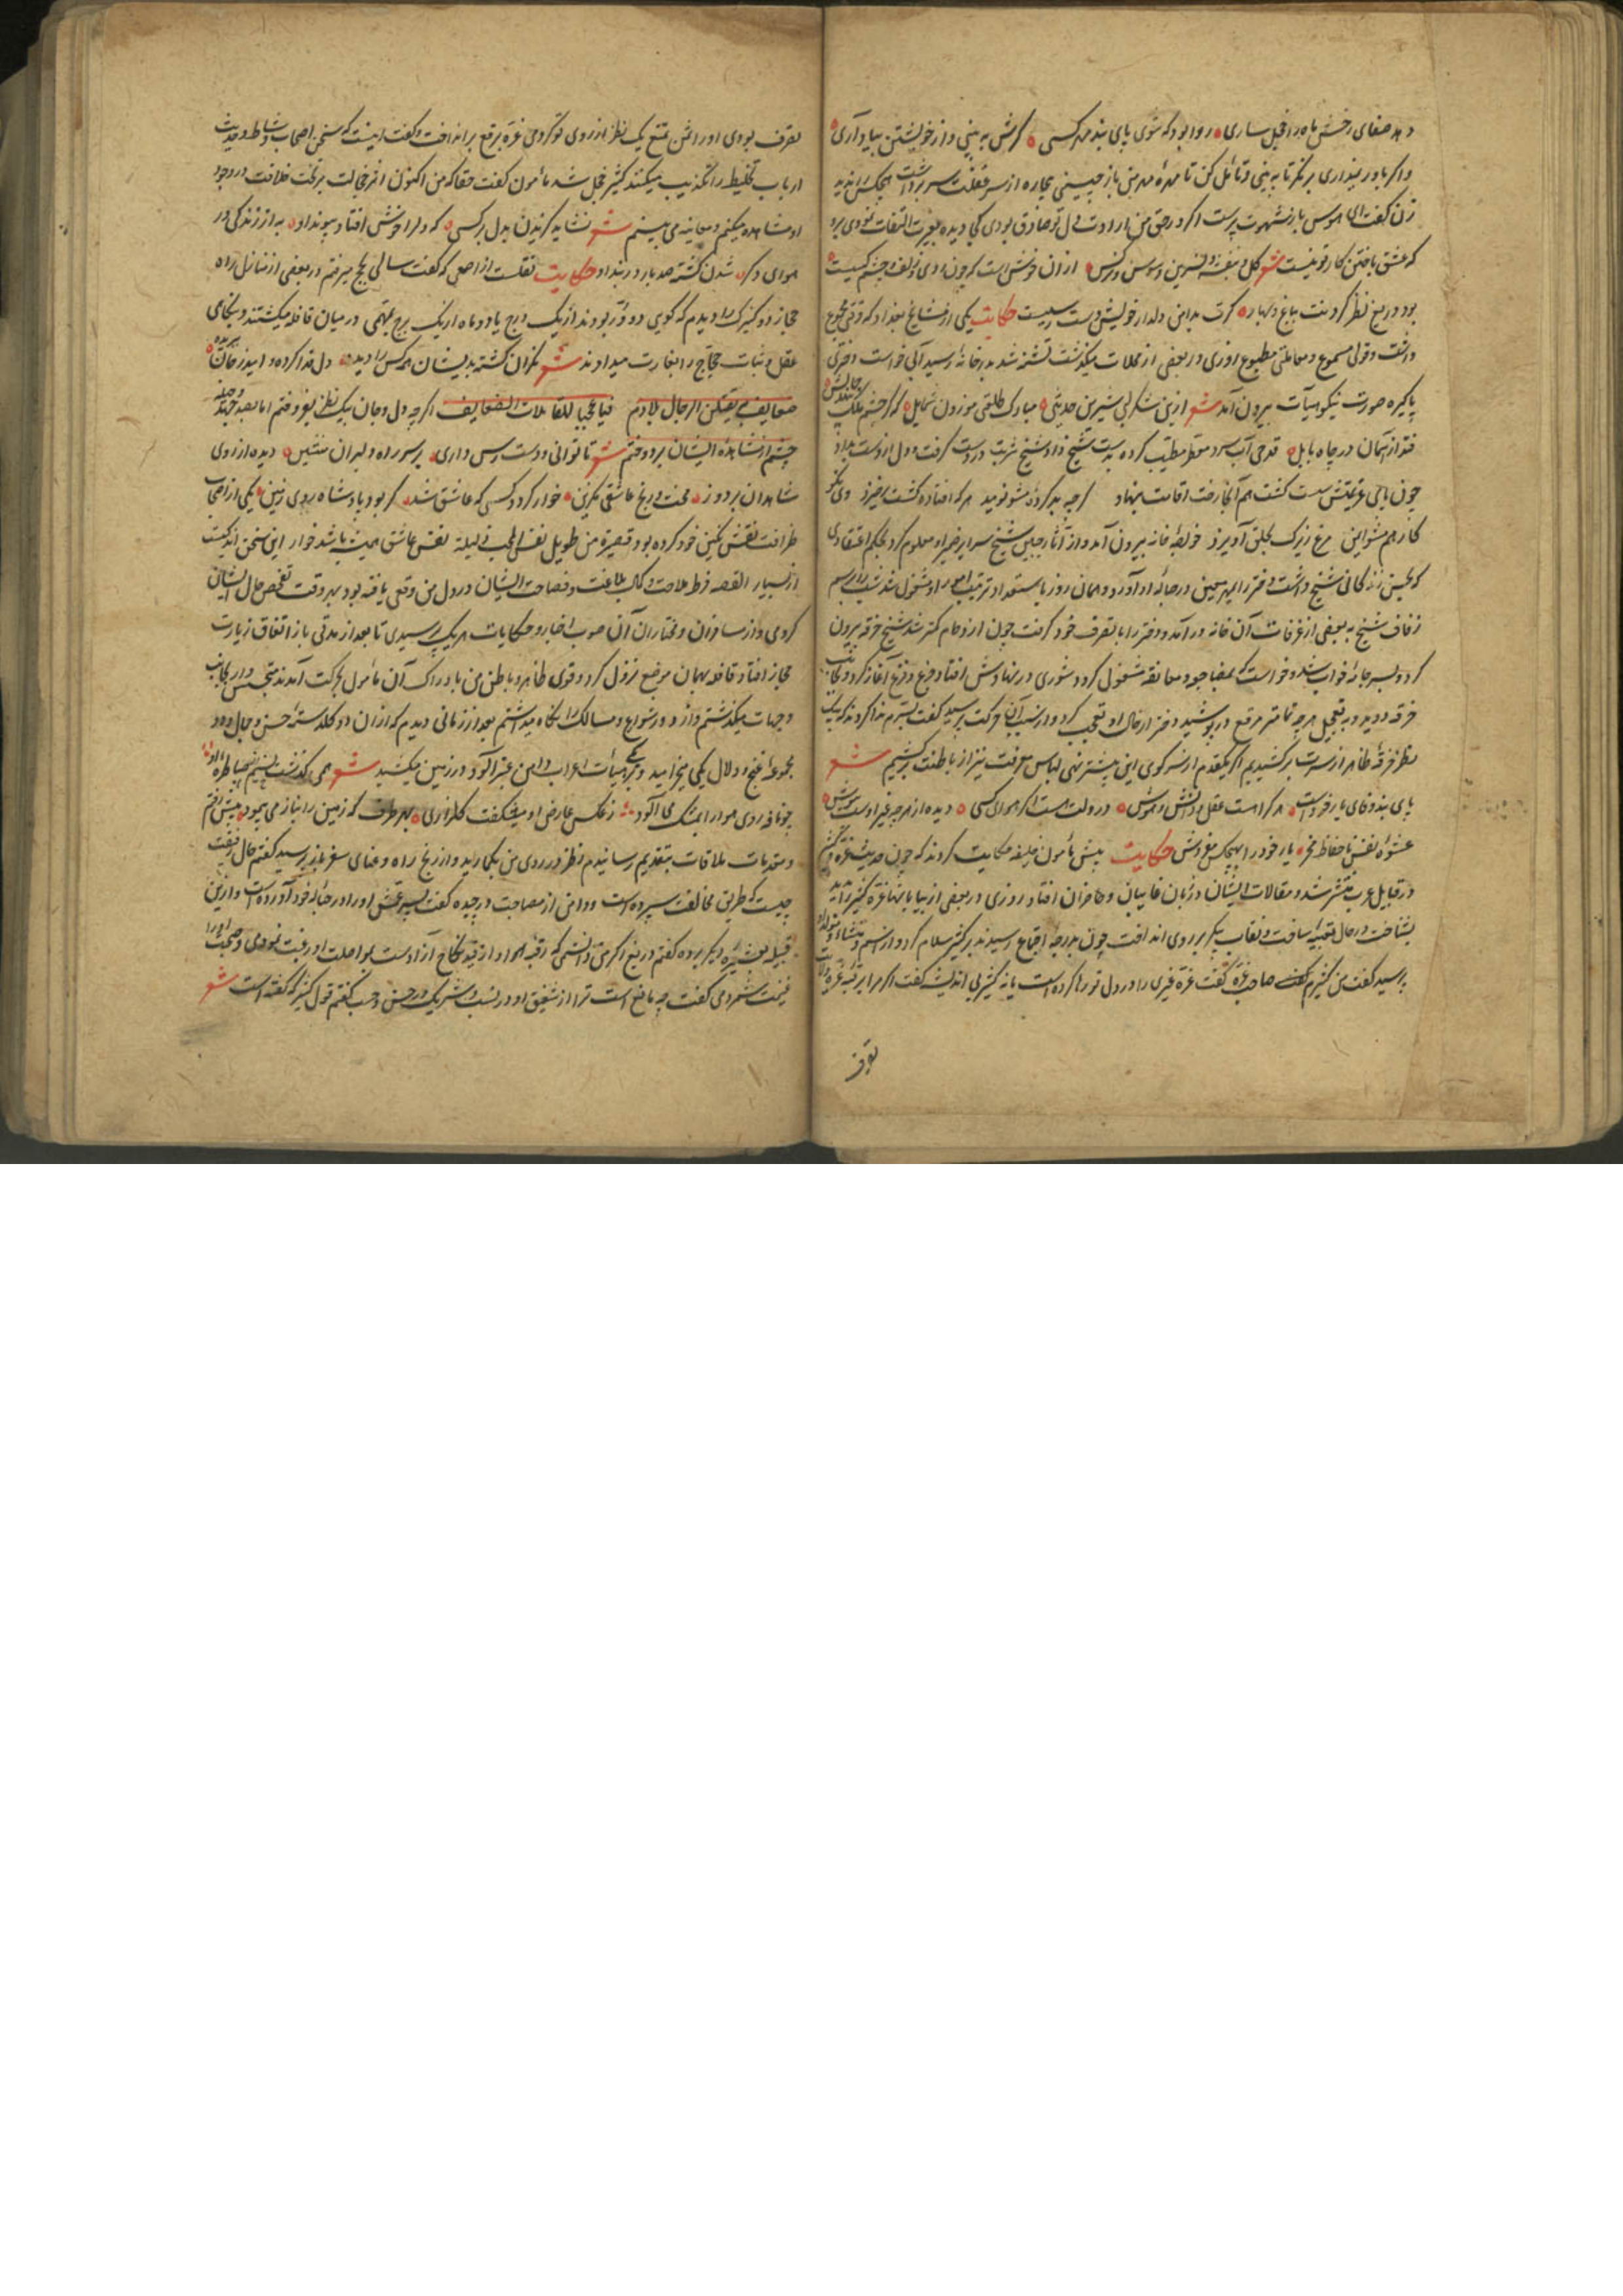 دهد صفای رخش ماه را خجل ساری روا بود که شوی پای بند مهر کسی گرش به بینی و از خویشتن بیاد آری
و اگر باور نداری بر نگر تا به بینی و تأمل کن تا باز چینی بیچاره از سر غفلت سر برداشت هیچکس را ندید
زن گفت ای هوس باز شهوت پرست اگر در حق من ارادت دل تو صادق بودی کی دیده بغیرت التفات نمودی برو
که عشق باختن کار تو نیست شعر گل و بنفشه و نسرین و سوسن و نرگس از ان خوش است که چون روی و زلف و چشم کسیست
بود دریغ نظر کردنت بباغ و بهار گرت بدامن دلدار خویش دست رسیست حکایت یکی از مشایخ بغداد که وقتی مجموع
داشت و قولی مسموع و معاملتی مطبوع روزی در بعضی از محلات میگذشت تشنه شد بدر خانه رسید آبی خواست دختری
پاکیزه صورت نیکو هیأت بیرون آمد شعر ازین شکر لبی شیرین حدیثی مبارک طلعتی موزون شمایل که گر چشم ملک
فتد از آسمان در چاه بابل قدحی آب سرد معطر مطیب کرده بدست شیخ داد شیخ شربت در دست گرفت و دل از دست بداد
چون پای عزیمتش سست گشت هم آنجا رخت اقامت بنهاد گرچه بد کرده مشو نومید هر که افتاده گشت برخیزد
کار هم مشو ایمن مرغ زیرک بحلق آویزد خواجه خانه بیرون آمد و از آثار جبین شیخ سرایر ضمیر او معلوم کرد بحکم اعتقادی
که بحسن زندگانی شیخ داشت دختر را بهر معین در حباله او آورد و همان روز باستعداد و ترتیب امور او مشغول شد شب را برسم
زفاف شیخ به بعضی از غرفات آن خانه درآمد و دختر را با تصرف خود گرفت چون ازدحام کمتر شد شیخ خرقه بیرون
کرد و بسر جامه خواب شد و خواست که بمضاجعه و معانقه مشغول گردد شوری در نهادش افتاد و فزع و جزع آغاز کرد و بجانب
خرقه دوید و به تعجیل هر چه تمامتر مرقع درپوشید دختر از حال او تعجب کرد و از سبب آن حرکت پرسید گفت بسرم ندا کردند که بیک
نظر خرقه ظاهر از سرت برکشیدیم اگر یکقدم از سر کوی این پیشتر نهی لباس معرفت نیز از باطنت برکشیم شعر
پای بند وفای یار خودست هر کرا هست عقل و دانش و هوش در ولت هست اگر هوای کسی دیده از هر چه غیر اوست بپوش
عشوه نفس نا حفاظ مخر یار خود را بهیچکس مفروش حکایت پیش مأمون خلیفه حکایت کردند که چون حدیث عزه و کثیر
در قبایل عرب منتشر شد و مقالات ایشان در زبان غایبان و حاضران افتاد روزی در بعضی از بیابانها عزه کثیر را بدید
بشناخت و در حال تعبیه ساخت و نقاب پیکر بر روی انداخت چون بدرجه اجتماع رسیدند بر کثیر سلام کرد و از اسم و منشاء و مولد او
پرسید گفت من کثیرم صاحب عزه گفت عزه غیری را در دل تو رها کرده است یا نه کثیر بی اندیشه گفت اگر مرا بر رقبه عزه
تصرف
تصرف بودی او را ثمن تمتع یک نظر از روی تو کردمی عزه برقع برانداخت و گفت اینست که سخن اصحاب نشاط و حدیث
ارباب تخلیط را تکذیب میکنند کثیر خجل شد مأمون گفت حقا که من اکنون اثر خجالت بر تخت خلافت در وجود
او مشاهده میکنم و معاینه می بینم شعر نشاید گزیدن بدل بر کسی که دلرا خوشش افتاد پیوند او به از زندگی در
هوای دگر شدن کشته صد بار در بند او حکایت نقلست از اصمعی که گفت سالی بحج میرفتم در بعضی از منازل راه
حجاز دو کنیزک را دیدم که گویی دو در بودند از یک درج یا دو ماه از یک برج بتهمی در میان قافله میگشتند و بنگاهی
عقل و ثبات حجاج را بغارت میدادند شعر نگران گشته بدیشان هر کس را دیده دل فدا کرده و امید ز جان ببریده
ضعایف یقتلن الرجال بلادم فیا عجبا للقاتلات الضعایف اگرچه دل و جان بیک نظر بفروختم اما بصد جهد
چشم از مشاهده ایشان بردوختم شعر تا توانی و دست رس داری بر سر راه دلبران منشین دیده از روی
شاهدان بردوز محنت و رنج عاشقی مگزین خوار گردد کسی که عاشق شد گر بود پادشاه روی زمین یکی از اصحاب
ظرافت نقش نگین خود کرده بود قصیرة من طویل نفس المحب ذلیلة نفس عاشق همیشه باشد خوار این سخن اندکیست
از بسیار القصه فرط ملاحت و کمال بلاغت و فصاحت ایشان در دل من وقعی یافته بود بهر وقت تفحص حال ایشان
کردمی و از مسافران و مختاران آن صوب اخبار و حکایات هر یک پرسیدی تا بعد از مدتی باز اتفاق زیارت
حجاز افتاد قافله بهمان موضع نزول کرد و قوی ظاهر و باطن من بادراک آن مأمول بحرکت آمدند متجسس وار بجانب
و جهات میگذشتم و از دور شوارع و مسالک را نگاه میداشتم بعد از زمانی دیدم که از ان دو گلدسته حسن و جمال و دو
مجموعه غنج و دلال یکی میخرامید و بر هیأت اعراب دامن عنبرآلود در زمین میکشید شعر همی گذشت
چو نافه روی هوا را بمشک می آلود ز عکس عارض او میشکفت گلزاری بهر طرف که زمین را بناز می پیمود پیش رفتم
و مقدمات ملاقات بتقدیم رسانیدم نظر در روی من بگمارید و از رنج راه و عنای سفر باز پرسید گفتم حال رفیقت
چیست که طریق مخالفت سپرده است و دامن از مصاحبت درچیده گفت پسر عمش او را در حباله خود آورده است و از بین
قبیله بعشیره دیگر برده گفتم دریغ اگر من دانستمی که رقبه او از قید نکاح آزادست بمواصلت او رغبت نمودی و صحبت او را
غنیمت شمردمی گفت چه مانع است ترا از شقیق او در نسب و شریک در حسن و حسب گفتم قول کثیر که گفته است شعر